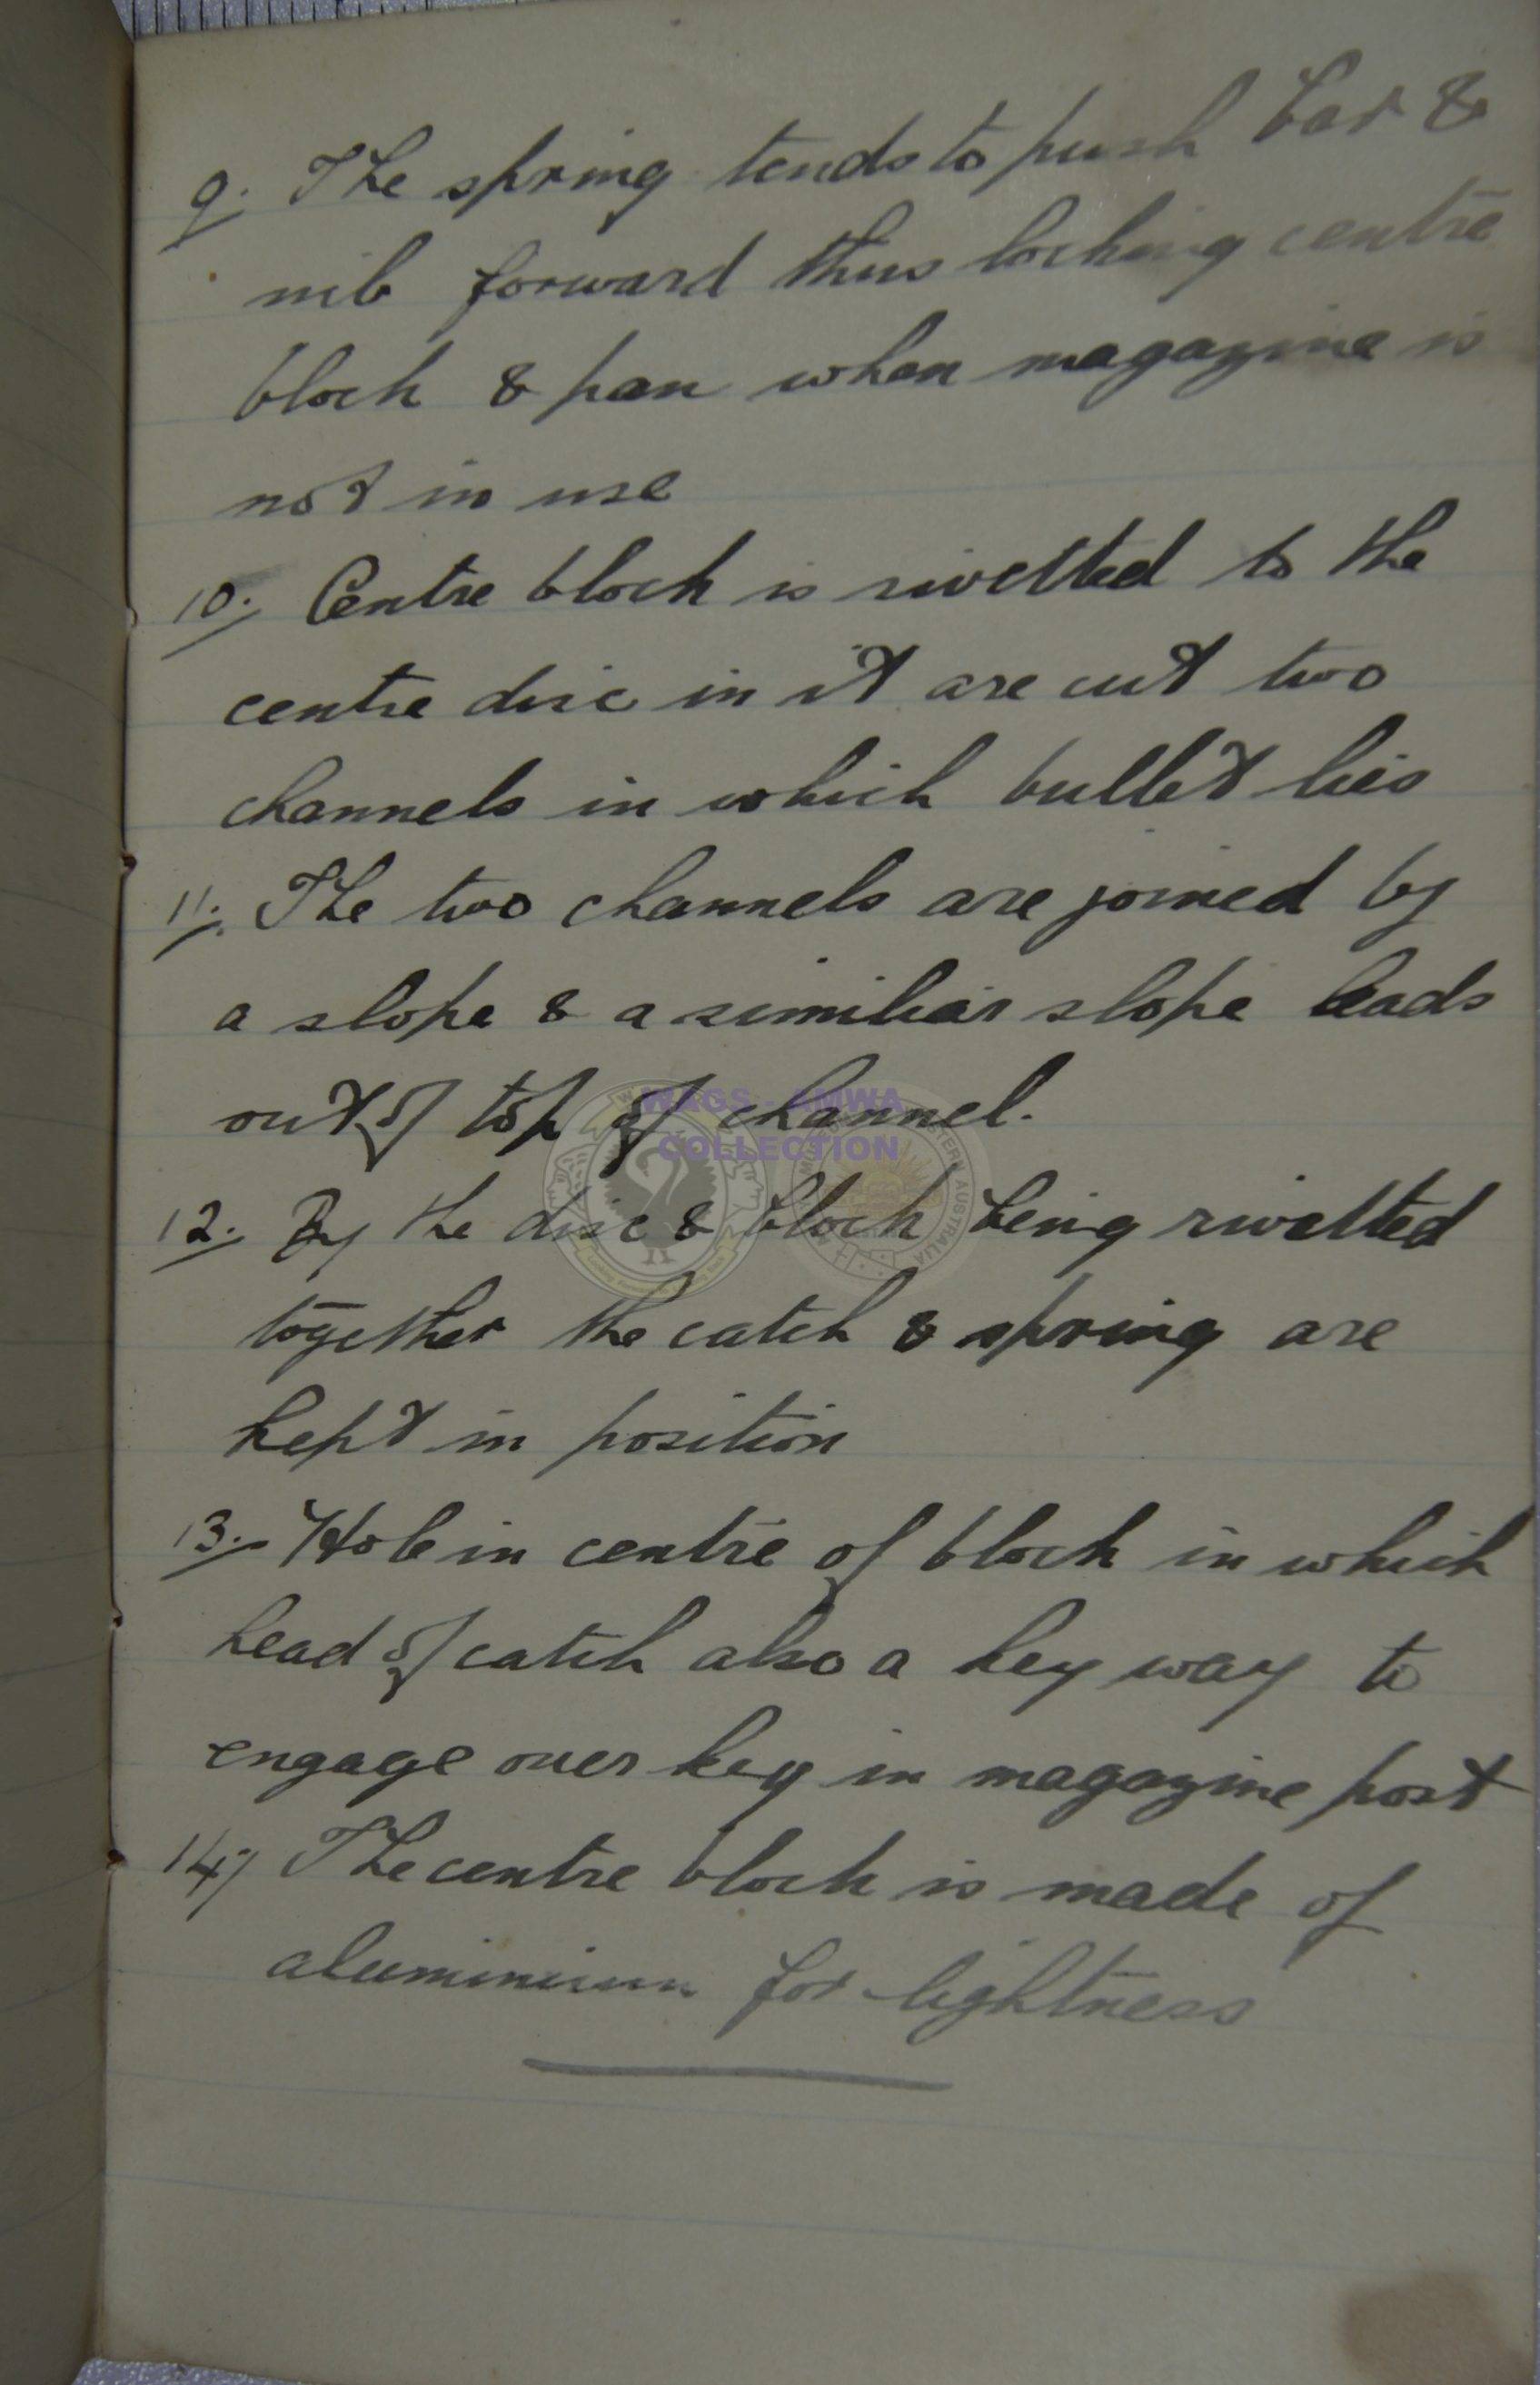 9. The spring tends to push bar &
nib forward thus locking centre
block & pan when magazine is
not in use
10. Centre block is rivetted to the
centre disc in it are cut two
channels in which bullet lies
11. The two channels are joined by
a slope & a similiar slope leads
out of top of channel.
WAGS - AMWA
COLLECTION
12. By the disc & block being rivetted
together the catch & spring are
kept in position
13. Hole in centre of block in which
head of catch also a key way to
engage over key in magazine post
14. The centre block is made of
aluminium for lightness